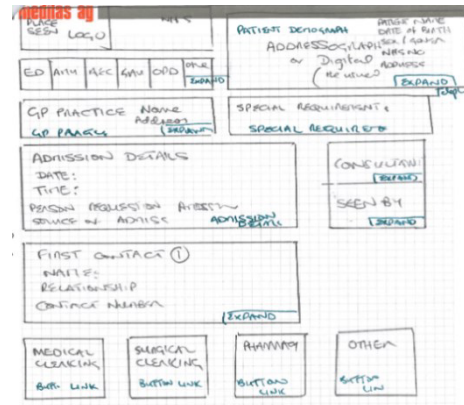 medhas ag
PLACE
SEEN LOGO
NHS
PATIENT DEMOGRAPH
ADDRESSOGRAPH
or Digital
PATIENT NAME
DATE OF BIRTH
SEX / GENDER
NHS NO
ADDRESS
EXPAND
ED AMU SAU OPD OTHER
EXPAND
GP PRACTICE Name
Address
GP PRACTICE EXPAND
SPECIAL REQUIREMENTS
SPECIAL REQUIRE
ADMISSION DETAILS
DATE:
TIME:
PERSON REQUESTION
SOURCE OF ADMISS ADMISSION
DETAILS
CONSULTAN
EXPAND
SEEN BY
EXPAND
FIRST CONTACT 1
NAME:
RELATIONSHIP
CONTACT NUMBER
EXPAND
MEDICAL
CLERKING
BUTTON LINK
SURGICAL
CLERKING
BUTTON LINK
PHARMACY
BUTTON
LINK
OTHER
BUTTON
LIN